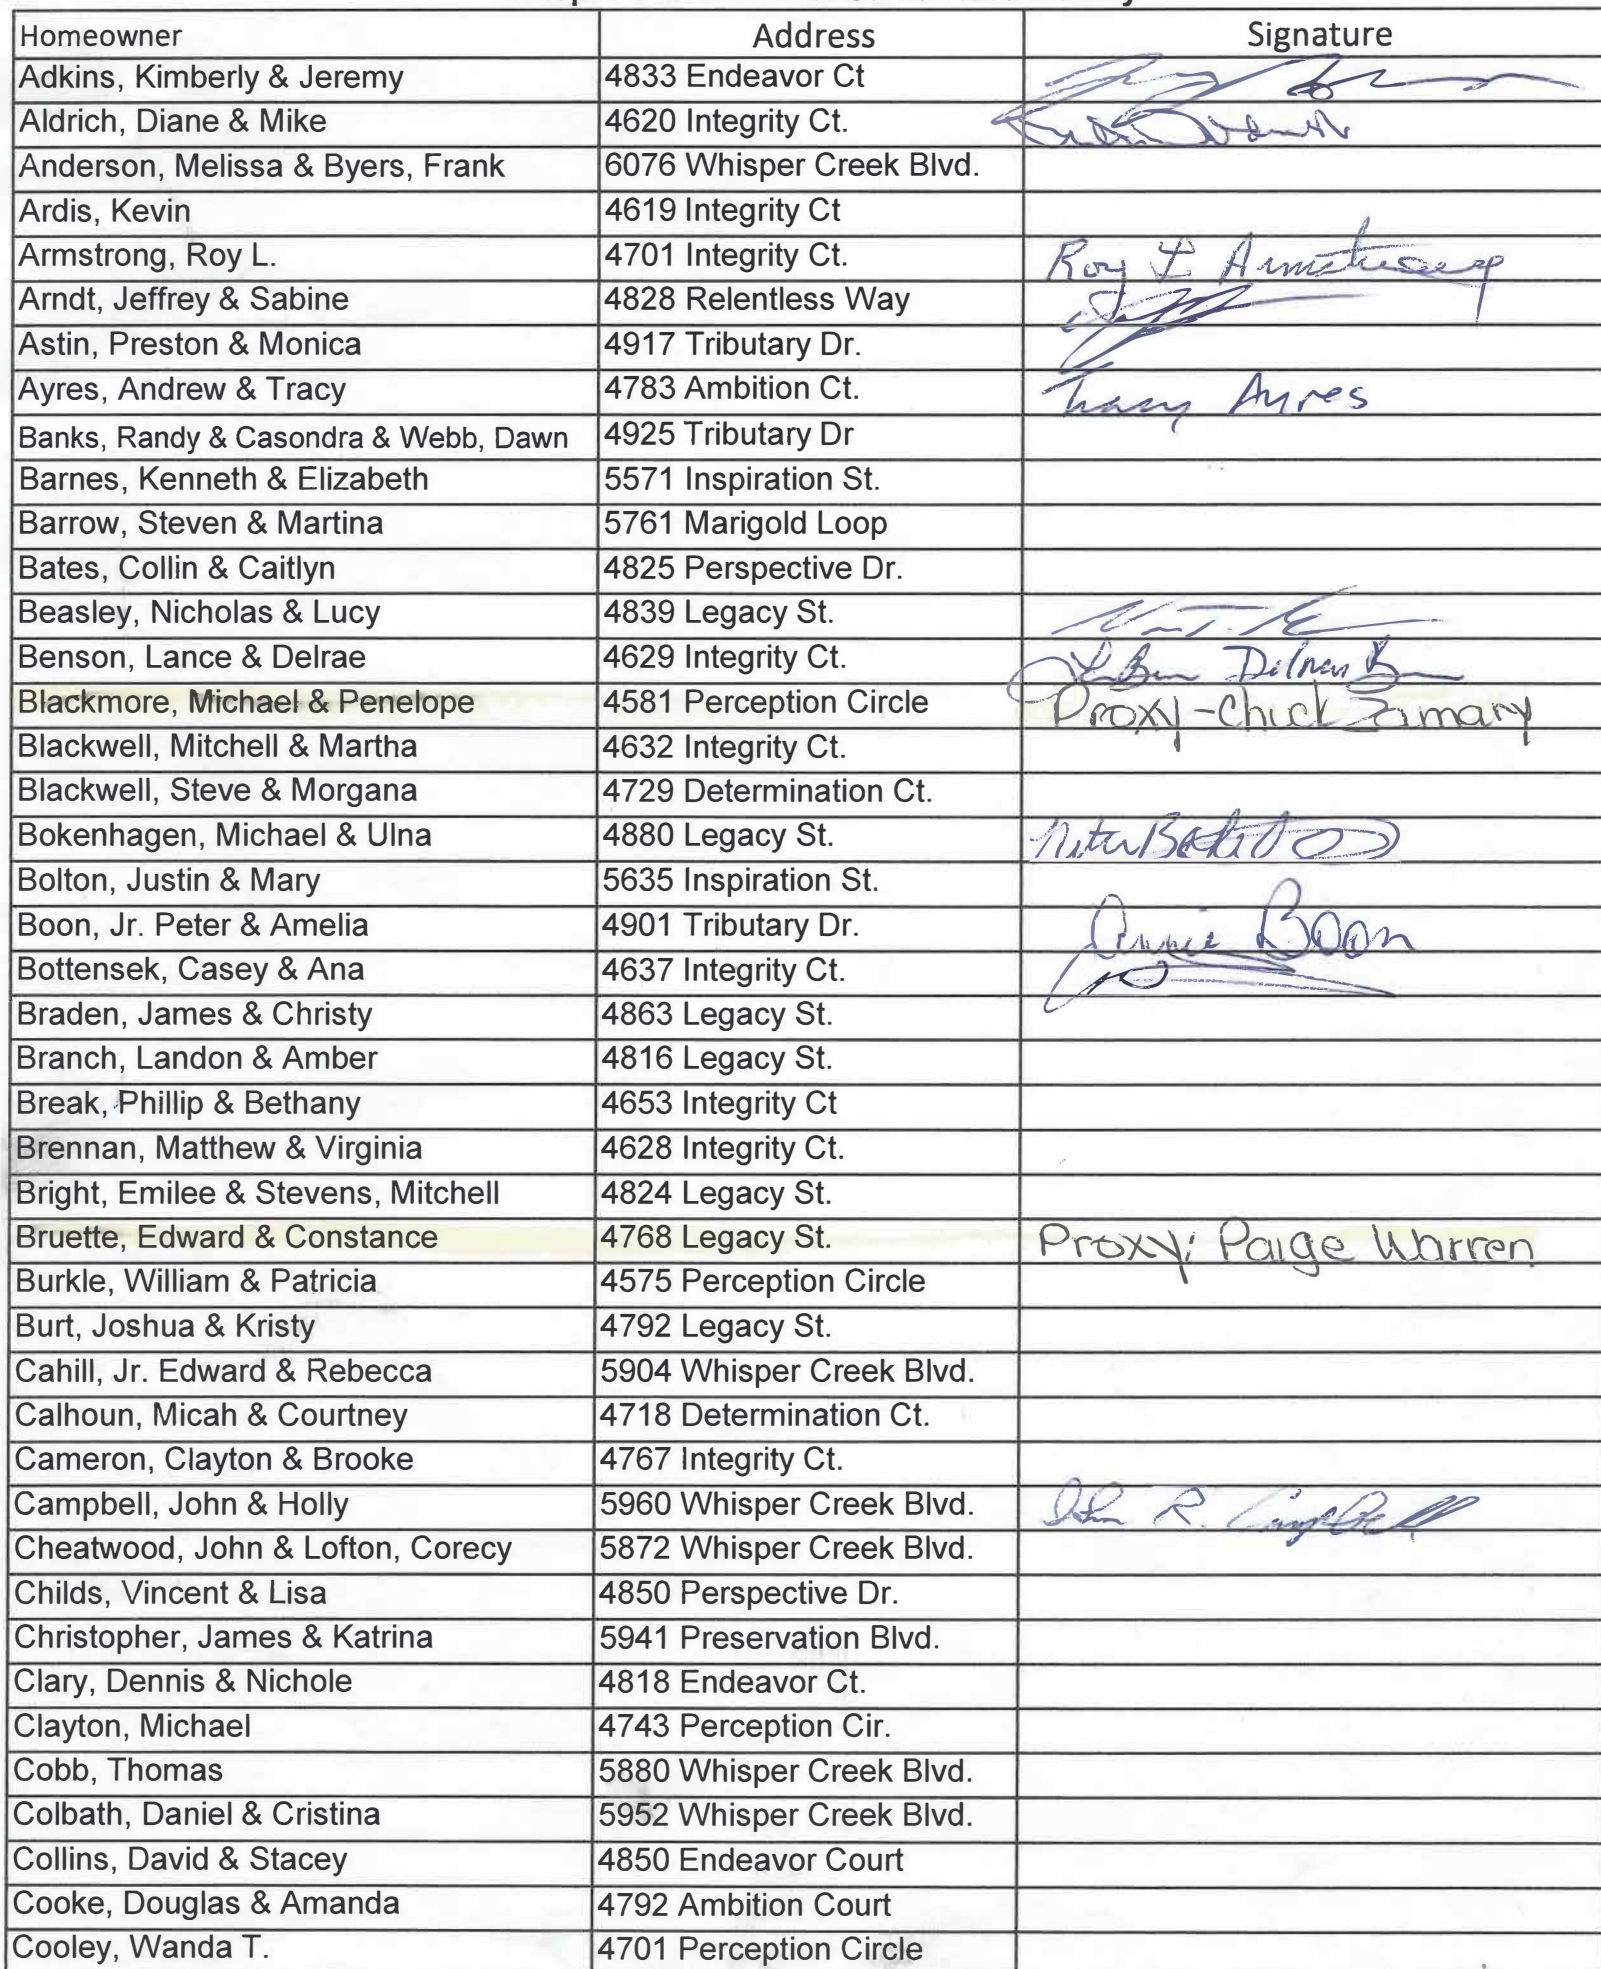 Homeowner Address Signature
Adkins, Kimberly & Jeremy 4833 Endeavor Ct
Aldrich, Diane & Mike 4620 Integrity Ct.
Anderson, Melissa & Byers, Frank 6076 Whisper Creek Blvd.
Ardis, Kevin 4619 Integrity Ct
Armstrong, Roy L. 4701 Integrity Ct. Roy L Armstrong
Arndt, Jeffrey & Sabine 4828 Relentless Way
Astin, Preston & Monica 4917 Tributary Dr.
Ayres, Andrew & Tracy 4783 Ambition Ct. Tracy Ayres
Banks, Randy & Casondra & Webb, Dawn 4925 Tributary Dr
Barnes, Kenneth & Elizabeth 5571 Inspiration St.
Barrow, Steven & Martina 5761 Marigold Loop
Bates, Collin & Caitlyn 4825 Perspective Dr.
Beasley, Nicholas & Lucy 4839 Legacy St.
Benson, Lance & Delrae 4629 Integrity Ct.
Blackmore, Michael & Penelope 4581 Perception Circle Proxy - Chuck
Blackwell, Mitchell & Martha 4632 Integrity Ct.
Blackwell, Steve & Morgana 4729 Determination Ct.
Bokenhagen, Michael & Ulna 4880 Legacy St.
Bolton, Justin & Mary 5635 Inspiration St.
Boon, Jr. Peter & Amelia 4901 Tributary Dr. Boon
Bottensek, Casey & Ana 4637 Integrity Ct.
Braden, James & Christy 4863 Legacy St.
Branch, Landon & Amber 4816 Legacy St.
Break, Phillip & Bethany 4653 Integrity Ct
Brennan, Matthew & Virginia 4628 Integrity Ct.
Bright, Emilee & Stevens, Mitchell 4824 Legacy St.
Bruette, Edward & Constance 4768 Legacy St. Proxy: Paige Warren
Burkle, William & Patricia 4575 Perception Circle
Burt, Joshua & Kristy 4792 Legacy St.
Cahill, Jr. Edward & Rebecca 5904 Whisper Creek Blvd.
Calhoun, Micah & Courtney 4718 Determination Ct.
Cameron, Clayton & Brooke 4767 Integrity Ct.
Campbell, John & Holly 5960 Whisper Creek Blvd. John R. Campbell
Cheatwood, John & Lofton, Corecy 5872 Whisper Creek Blvd.
Childs, Vincent & Lisa 4850 Perspective Dr.
Christopher, James & Katrina 5941 Preservation Blvd.
Clary, Dennis & Nichole 4818 Endeavor Ct.
Clayton, Michael 4743 Perception Cir.
Cobb, Thomas 5880 Whisper Creek Blvd.
Colbath, Daniel & Cristina 5952 Whisper Creek Blvd.
Collins, David & Stacey 4850 Endeavor Court
Cooke, Douglas & Amanda 4792 Ambition Court
Cooley, Wanda T. 4701 Perception Circle